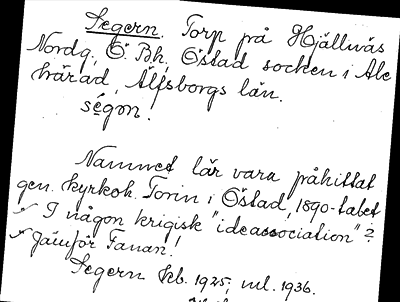 Segern. Torp på Hjällnäs
Nordg, Ö. Bh, Östad socken i Ale
härad, Älfsborgs län.
ségɷn.
Namnet lär vara påhittat
gen. kyrkoh. Torin i Östad, 1890-talet
I någon krigisk "ideassociation"?
Jämför Fanan!
Segern Jeb. 1925; ml. 1936.